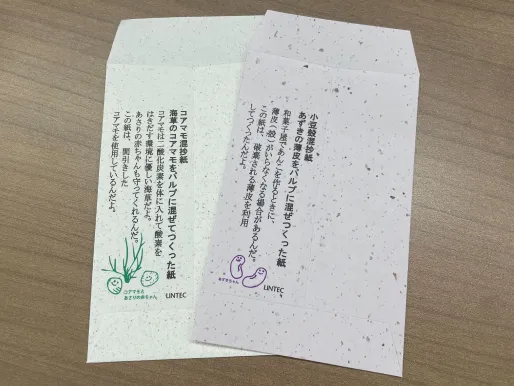 コアマモ混抄紙
海草のコアマモをパルプに混ぜてつくった紙
コアマモは二酸化炭素を体に入れて酸素を
はきだす環境に優しい海草だよ。
あさりの赤ちゃんも守ってくれるんだ。
この紙は、間引きした
コアマモを使用しているんだよ。
コアマモと
あさりの赤ちゃん
LINTEC
小豆殻混抄紙
あずきの薄皮をパルプに混ぜてつくった紙
和菓子屋であんこを作るときに、
薄皮（殻）がいらなくなる場合があるんだ。
この紙は、破棄される薄皮を利用
してつくったんだよ。
あずきちゃん
LINTEC